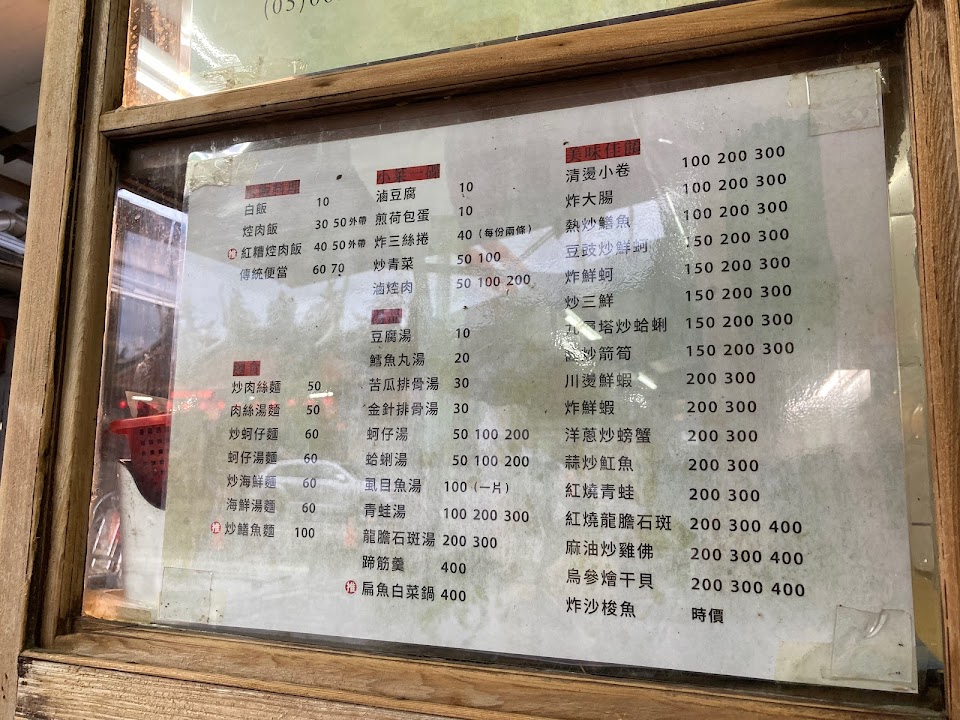 白飯 10
焢肉飯 30 50 外帶
推 紅糟焢肉飯 40 50 外帶
傳統便當 60 70
炒肉絲麵 50
肉絲湯麵 50
炒蚵仔麵 60
蚵仔湯麵 60
炒海鮮麵 60
海鮮湯麵 60
推 炒鱔魚麵 100
小菜一碟
滷豆腐 10
煎荷包蛋 10
炸三絲捲 40 (每份兩條)
炒青菜 50 100
滷焢肉 50 100 200
豆腐湯 10
鱈魚丸湯 20
苦瓜排骨湯 30
金針排骨湯 30
蚵仔湯 50 100 200
蛤蜊湯 50 100 200
虱目魚湯 100 (一片)
青蛙湯 100 200 300
龍膽石斑湯 200 300
蹄筋羹 400
推 扁魚白菜鍋 400
美味佳餚
清燙小卷 100 200 300
炸大腸 100 200 300
熱炒鱔魚 100 200 300
豆豉炒鮮蚵 150 200 300
炸鮮蚵 150 200 300
炒三鮮 150 200 300
九層塔炒蛤蜊 150 200 300
炒箭筍 150 200 300
川燙鮮蝦 200 300
炸鮮蝦 200 300
洋蔥炒螃蟹 200 300
蒜炒魟魚 200 300
紅燒青蛙 200 300
紅燒龍膽石斑 200 300 400
麻油炒雞佛 200 300 400
烏參燴干貝 200 300 400
炸沙梭魚 時價